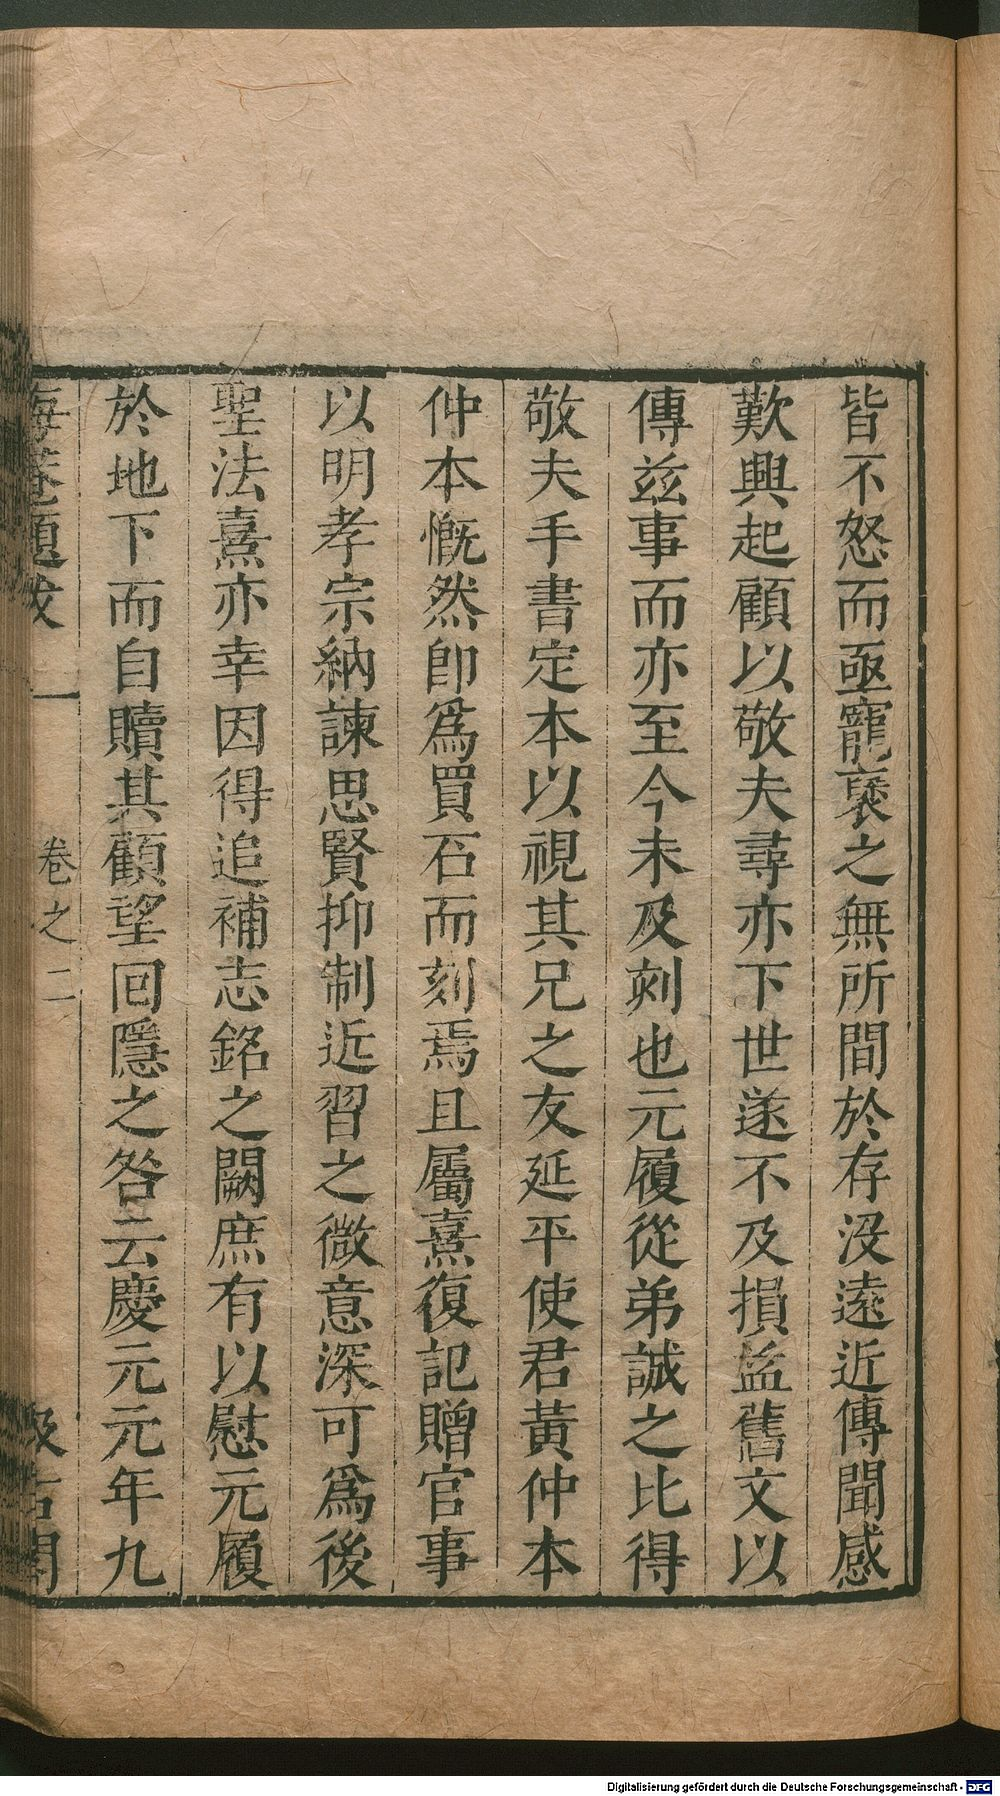 皆不怒而亟寵褒之無所間於存沒遠近傳聞感
歎興起顧以敬夫尋亦下世遂不及損益舊文以
傳茲事而亦至今未及刻也元履從弟誠之比得
敬夫手書定本以視其兄之友延平使君黃仲本
仲本慨然卽爲買石而刻焉且屬熹復記贈官事
以明孝宗納諫思賢抑制近習之微意深可爲後
聖法熹亦幸因得追補志銘之闕庶有以慰元履
於地下而自贖其顧望回隱之咎云慶元元年九
海菴題跋 一 卷之二 汲古閣
Digitalisierung gefördert durch die Deutsche Forschungsgemeinschaft - DFG